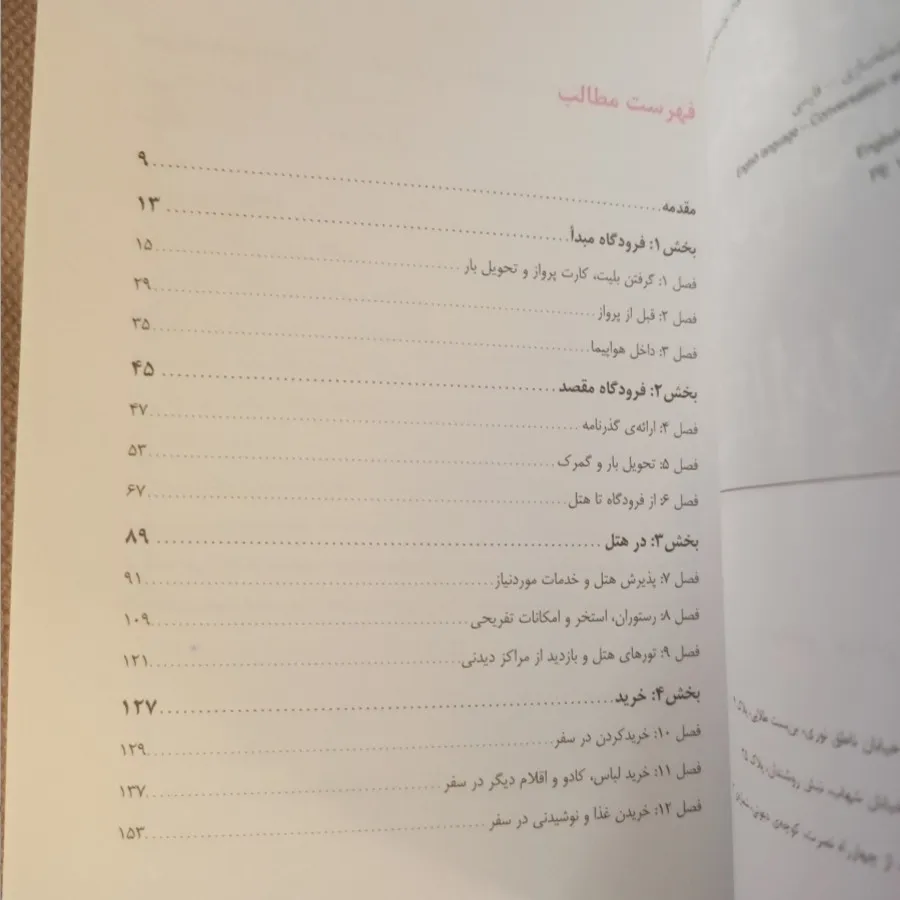 فهرست مطالب
مقدمه ........ ۹
بخش ۱: فرودگاه مبدأ ........ ۱۳
فصل ۱: گرفتن بلیت، کارت پرواز و تحویل بار ........ ۱۵
فصل ۲: قبل از پرواز ........ ۲۹
فصل ۳: داخل هواپیما ........ ۳۵
بخش ۲: فرودگاه مقصد ........ ۴۵
فصل ۴: ارائه‌ی گذرنامه ........ ۴۷
فصل ۵: تحویل بار و گمرک ........ ۵۳
فصل ۶: از فرودگاه تا هتل ........ ۶۷
بخش ۳: در هتل ........ ۸۹
فصل ۷: پذیرش هتل و خدمات موردنیاز ........ ۹۱
فصل ۸: رستوران، استخر و امکانات تفریحی ........ ۱۰۹
فصل ۹: تورهای هتل و بازدید از مراکز دیدنی ........ ۱۲۱
بخش ۴: خرید ........ ۱۲۷
فصل ۱۰: خریدکردن در سفر ........ ۱۲۹
فصل ۱۱: خرید لباس، کادو و اقلام دیگر در سفر ........ ۱۳۷
فصل ۱۲: خریدن غذا و نوشیدنی در سفر ........ ۱۵۳
فارسی
Conversation
English
PE